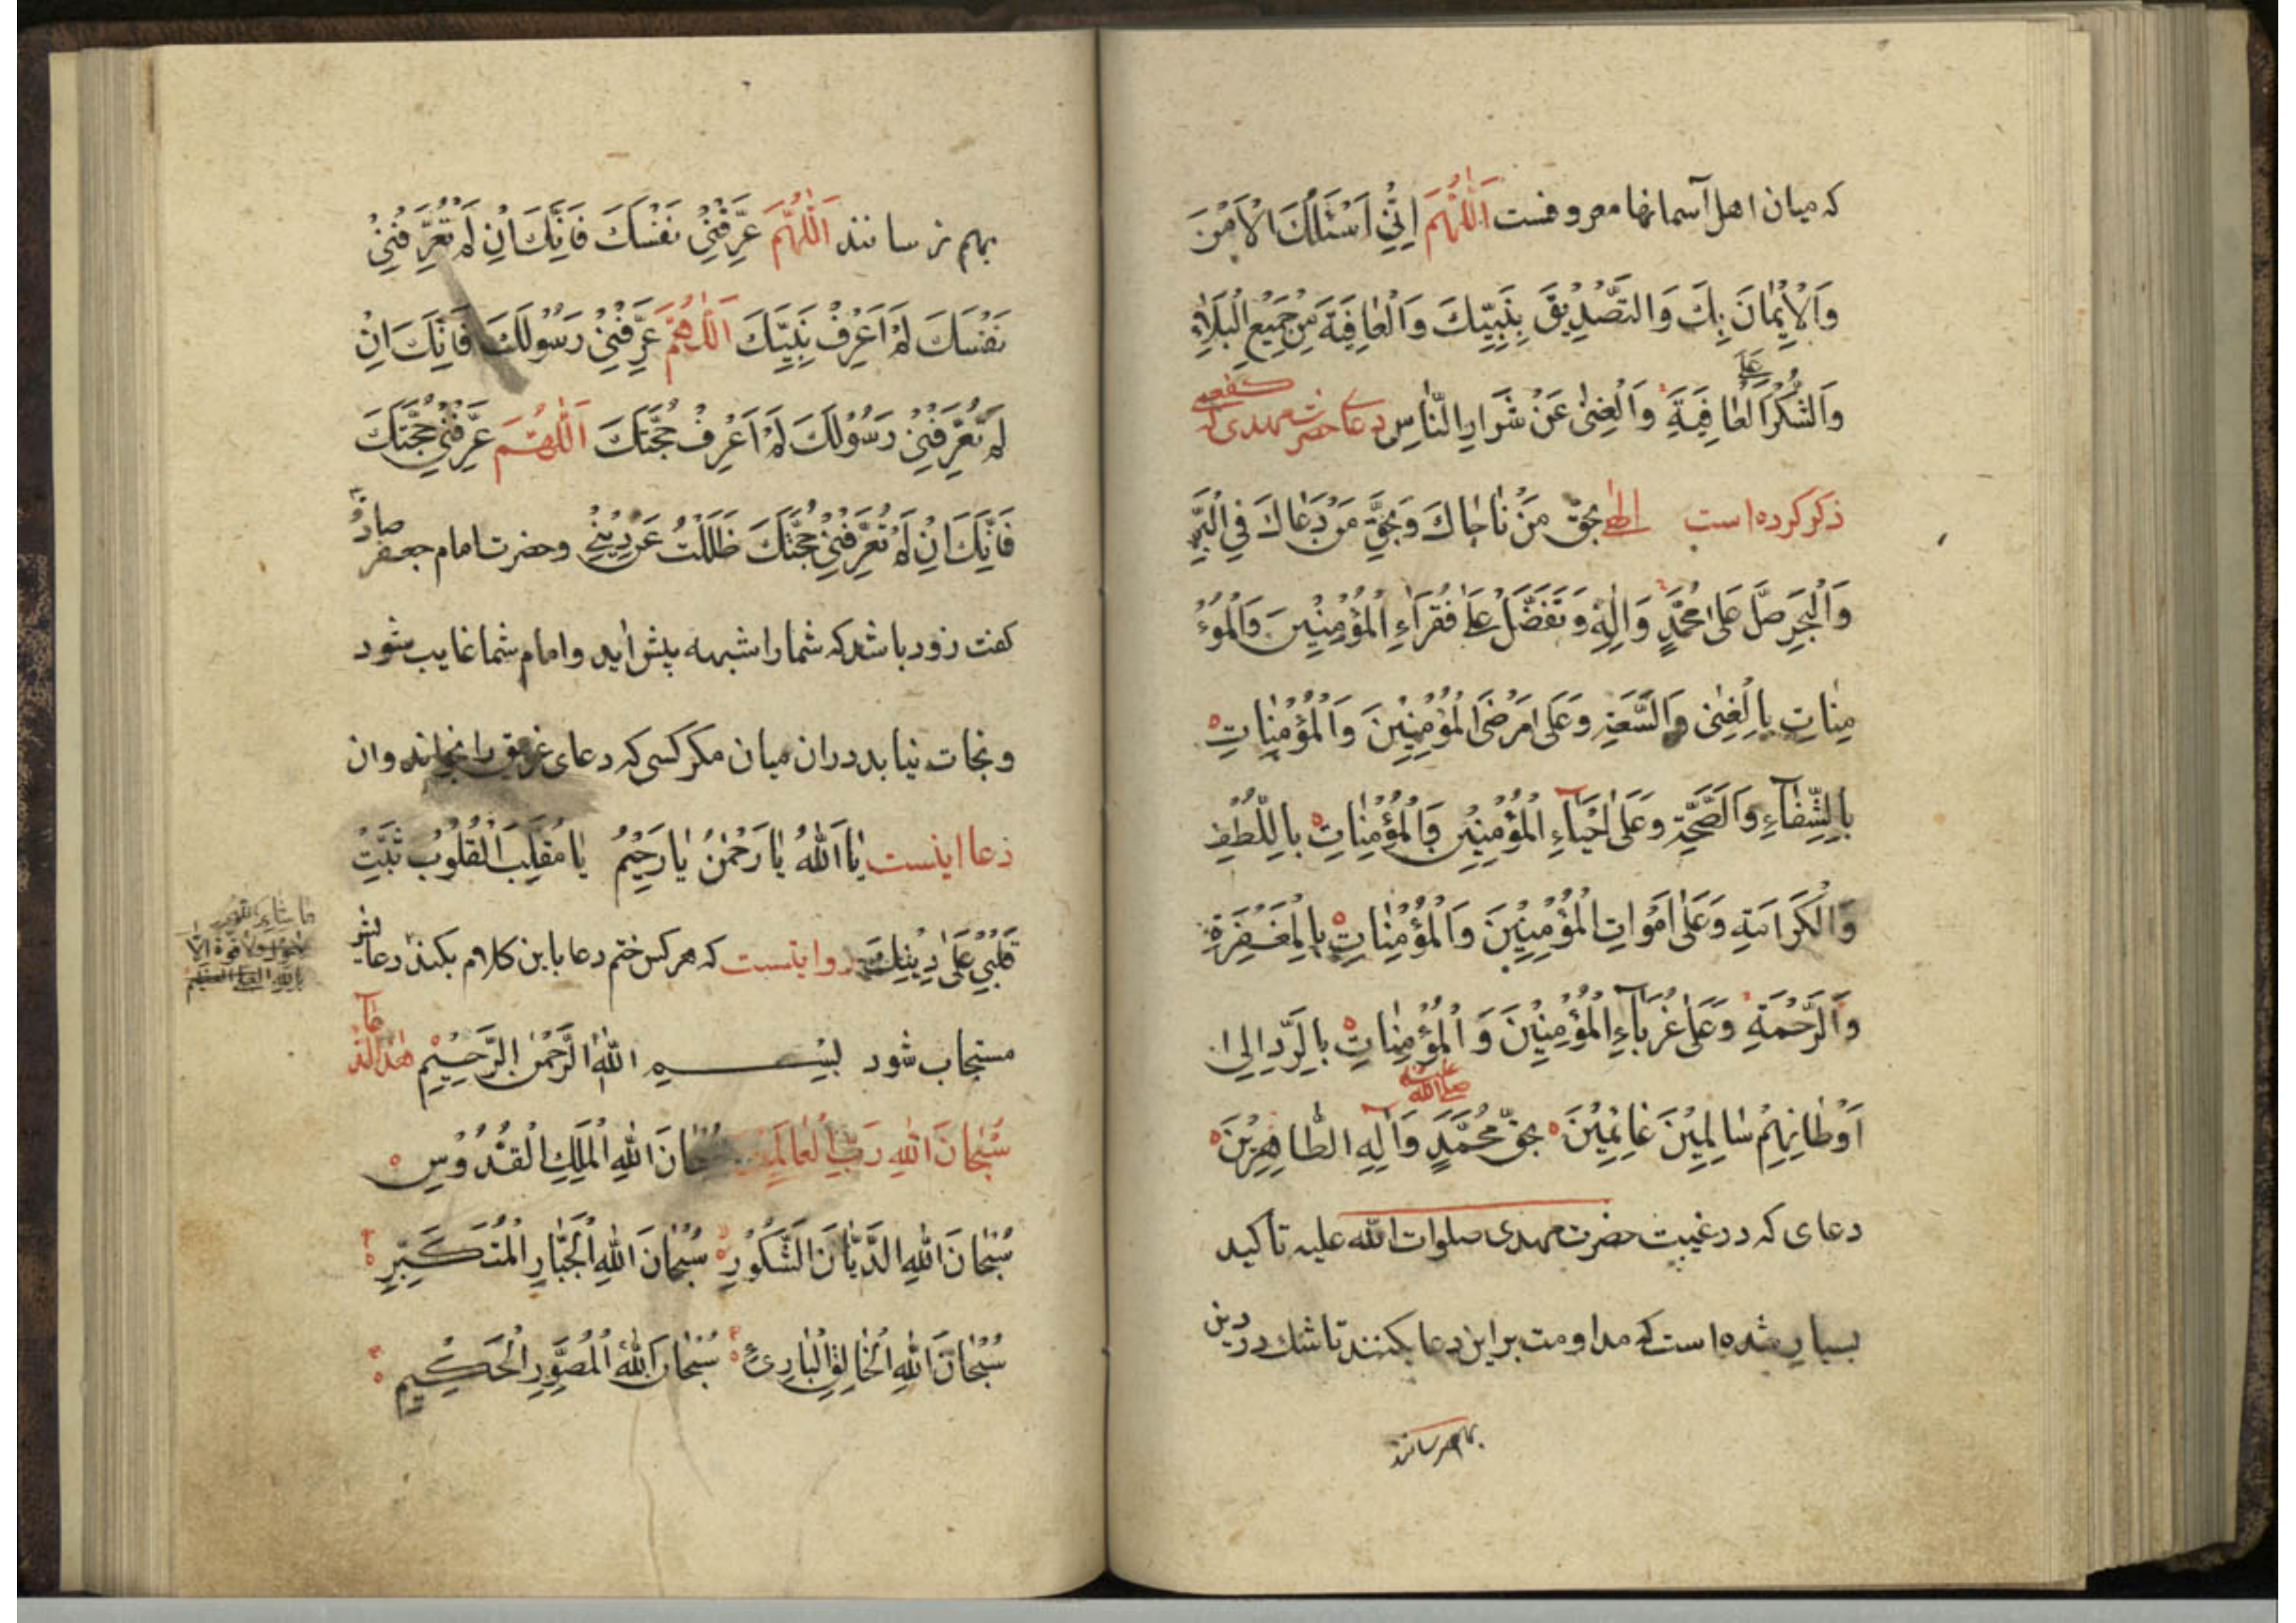 که میان اهل آسمانها معروفست اَللّٰهُمَّ اِنّٖي اَسْئَلُكَ الْاَمْنَ
وَالْاٖيمٰانَ بِكَ وَالتَّصْدٖيقَ بِنَبِيِّكَ وَالْعٰافِيَةَ مِنْ جَمٖيعِ الْبَلٰاءِ
وَالشُّكْرَ عَلَى الْعٰافِيَةِ وَالْغِنىٰ عَنْ شَرَارِ النّٰاسِ دعای حضرت مهدی که کفعمی
ذکر کرده است الٰهٖي بِحَقِّ مَنْ نٰاجٰاكَ وَبِحَقِّ مَنْ دَعٰاكَ فِي الْبَرِّ
وَالْبَحْرِ صَلِّ عَلىٰ مُحَمَّدٍ وَاٰلِهٖ وَتَفَضَّلْ عَلىٰ فُقَرَاءِ الْمُؤْمِنٖينَ وَالْمُؤْ
مِنٰاتِ بِالْغِنىٰ وَالسَّعَةِ وَعَلىٰ مَرْضَى الْمُؤْمِنٖينَ وَالْمُؤْمِنٰاتِ
بِالشِّفٰاءِ وَالصِّحَّةِ وَعَلىٰ اَحْيٰاءِ الْمُؤْمِنٖينَ وَالْمُؤْمِنٰاتِ بِاللُّطْفِ
وَالْكَرَامَةِ وَعَلىٰ اَمْوَاتِ الْمُؤْمِنٖينَ وَالْمُؤْمِنٰاتِ بِالْمَغْفِرَةِ
وَالرَّحْمَةِ وَعَلىٰ غُرَبٰاءِ الْمُؤْمِنٖينَ وَالْمُؤْمِنٰاتِ بِالرَّدِّ اِلىٰ
اَوْطٰانِهِمْ سٰالِمٖينَ غٰانِمٖينَ بِحَقِّ مُحَمَّدٍ صلی الله علیه وَاٰلِهِ الطّٰاهِرٖينَ
دعای که در غیبت حضرت مهدی صلوات الله علیه تاکید
بسیار شده است که مداومت براین دعا بکنند تا شك در دین
بهم نرسانند
بهم نرسانند اَللّٰهُمَّ عَرِّفْنٖي نَفْسَكَ فَاِنَّكَ اِنْ لَمْ تُعَرِّفْنٖي
نَفْسَكَ لَمْ اَعْرِفْ نَبِيَّكَ اَللّٰهُمَّ عَرِّفْنٖي رَسُولَكَ فَاِنَّكَ اِنْ
لَمْ تُعَرِّفْنٖي رَسُولَكَ لَمْ اَعْرِفْ حُجَّتَكَ اَللّٰهُمَّ عَرِّفْنٖي حُجَّتَكَ
فَاِنَّكَ اِنْ لَمْ تُعَرِّفْنٖي حُجَّتَكَ ظَلَلْتُ عَنْ دٖينٖي وحضرت امام جعفر صادق
کفت زود باشد که شما را شبهه پیش اید وامام شما غایب شود
ونجات نیابد دران میان مکر کسی که دعای غریق را بخواند وان
دعا اینست يٰا اَللّٰهُ يٰا رَحْمٰنُ يٰا رَحٖيمُ يٰا مُقَلِّبَ الْقُلُوبِ ثَبِّتْ
قَلْبٖي عَلىٰ دٖينِكَ روایتست که هرکس ختم دعا باین کلام بکند دعایش
ما شاء الله
لا حول ولا قوة الا
بالله العلی العظیم
مستجاب شود بِسْمِ اللّٰهِ الرَّحْمٰنِ الرَّحٖيمِ هذا الدعاء
سُبْحٰانَ اللّٰهِ رَبِّ الْعٰالَمٖينَ سُبْحٰانَ اللّٰهِ الْمَلِكِ الْقُدُّوسِ
سُبْحٰانَ اللّٰهِ الدَّيّٰانِ الشَّكُورِ سُبْحٰانَ اللّٰهِ الْجَبّٰارِ الْمُتَكَبِّرِ
سُبْحٰانَ اللّٰهِ الْخٰالِقِ الْبٰارِئِ سُبْحٰانَ اللّٰهِ الْمُصَوِّرِ الْحَكٖيمِ